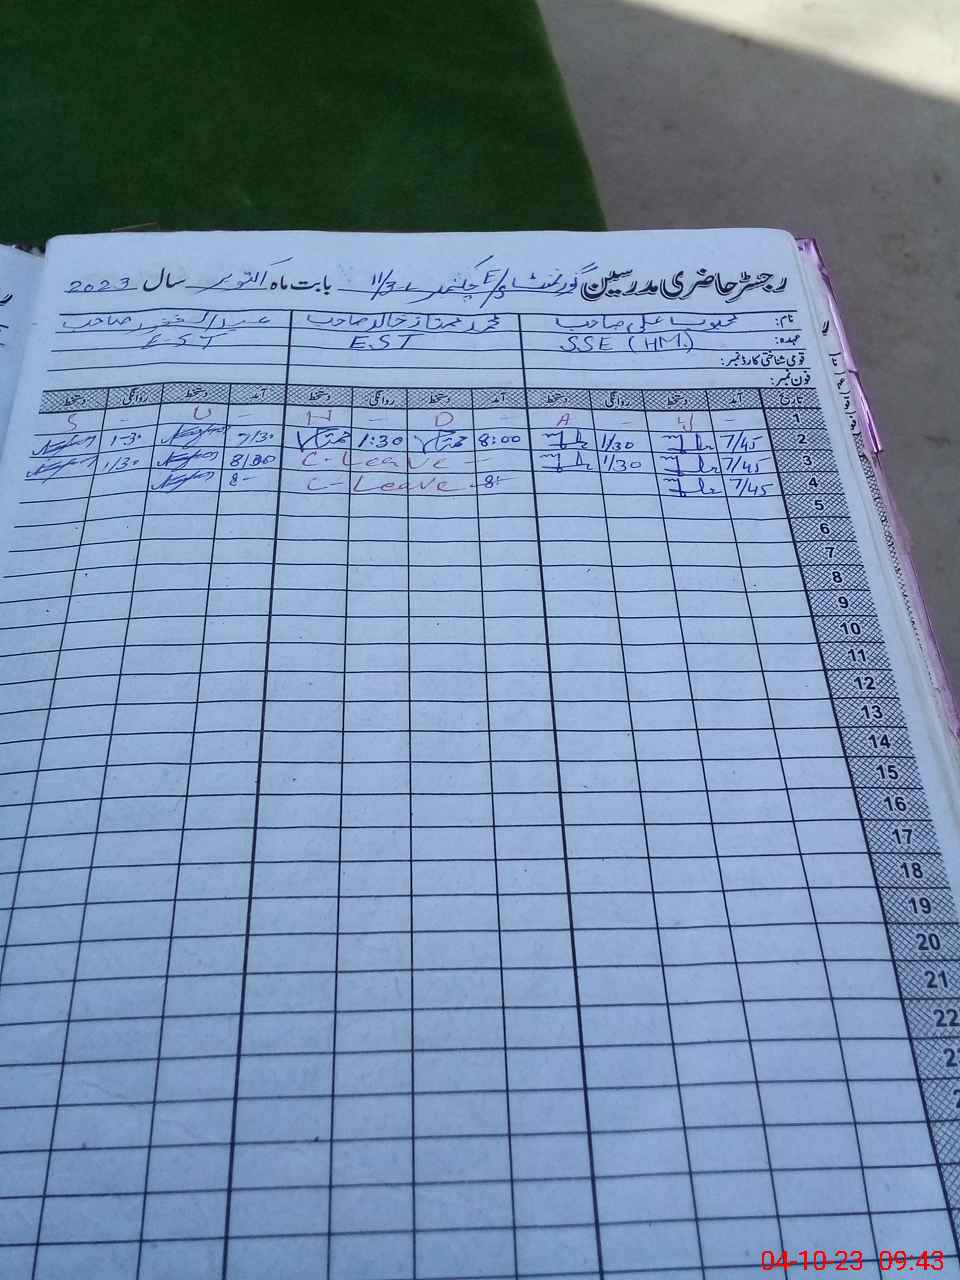 رجسٹر حاضری مدرسین گورنمنٹ E/S 11/3-L بابت ماہ اکتوبر سال 2023
نام: محبوب علی صاحب محمد ممتاز خالد صاحب صاحب
عہدہ: SSE (HM.) E.ST E-ST
قومی شناختی کارڈ نمبر:
فون نمبر:
تاریخ آمد دستخط روانگی دستخط آمد دستخط روانگی دستخط آمد دستخط روانگی دستخط
S - U - N - D - A - Y - 1
1-30 7/30 1:30 8:00 1/30 7/45 2
1/30 8/00 C-Leave - 1/30 7/45 3
8- C-Leave 8- 7/45 4
5
6
7
8
9
10
11
12
13
14
15
16
17
18
19
20
21
22
2
2
04-10-23 09:43